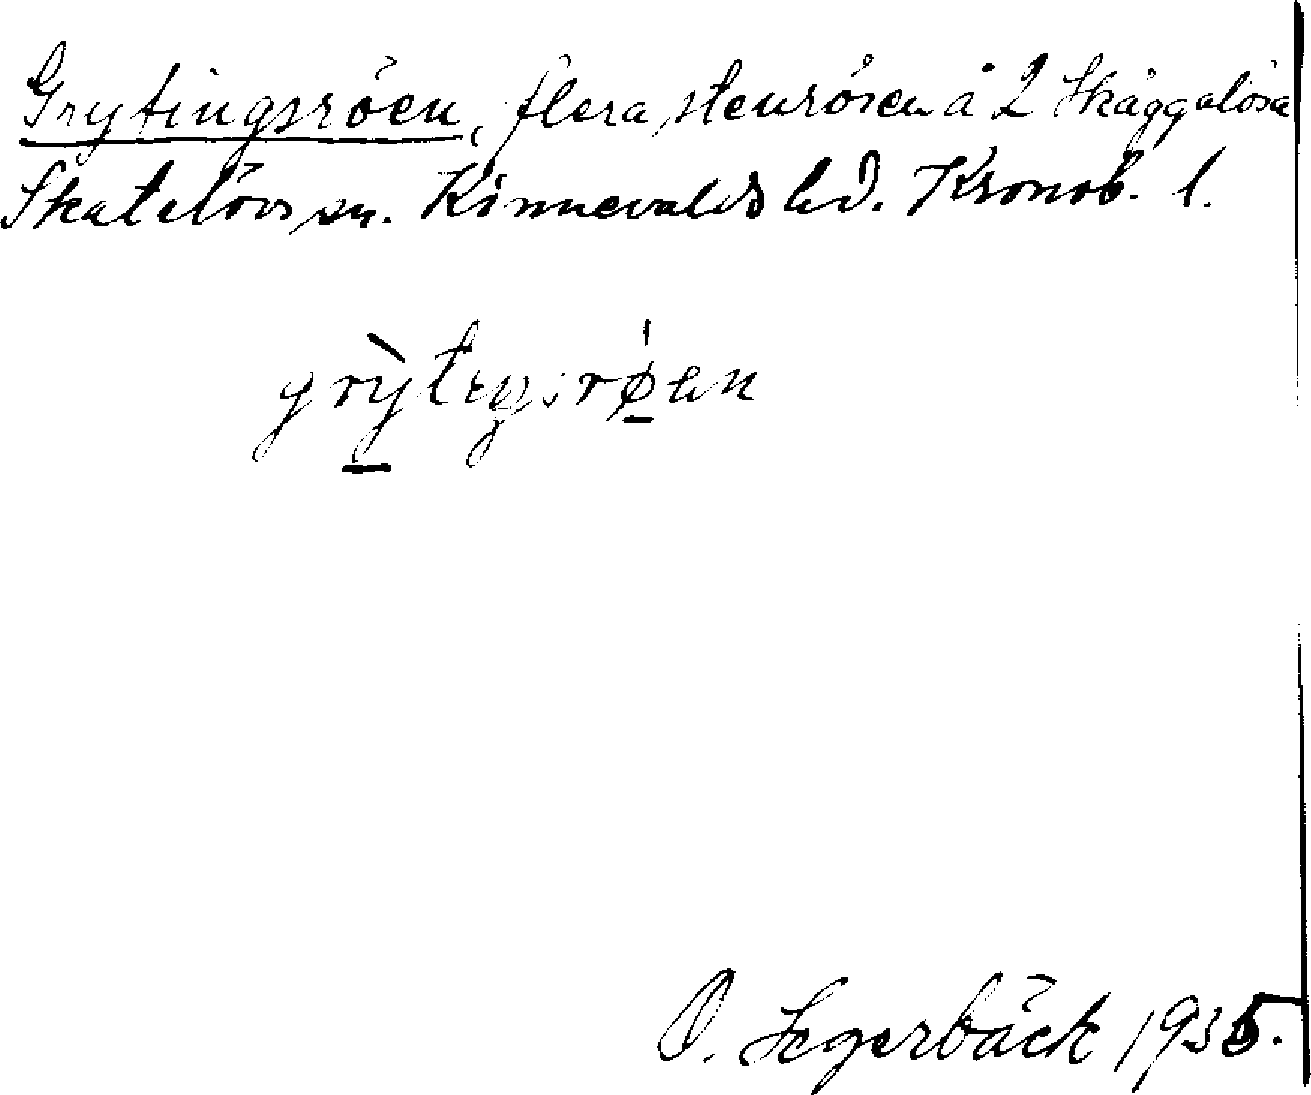 Grytingsröen, flera stenrösen å 2 Skäggalösa
Skatelövs sn. Kinnevalds hd. Kronob. l.
grỳtıŋsrø̍en
O. Segerbäck 1935.